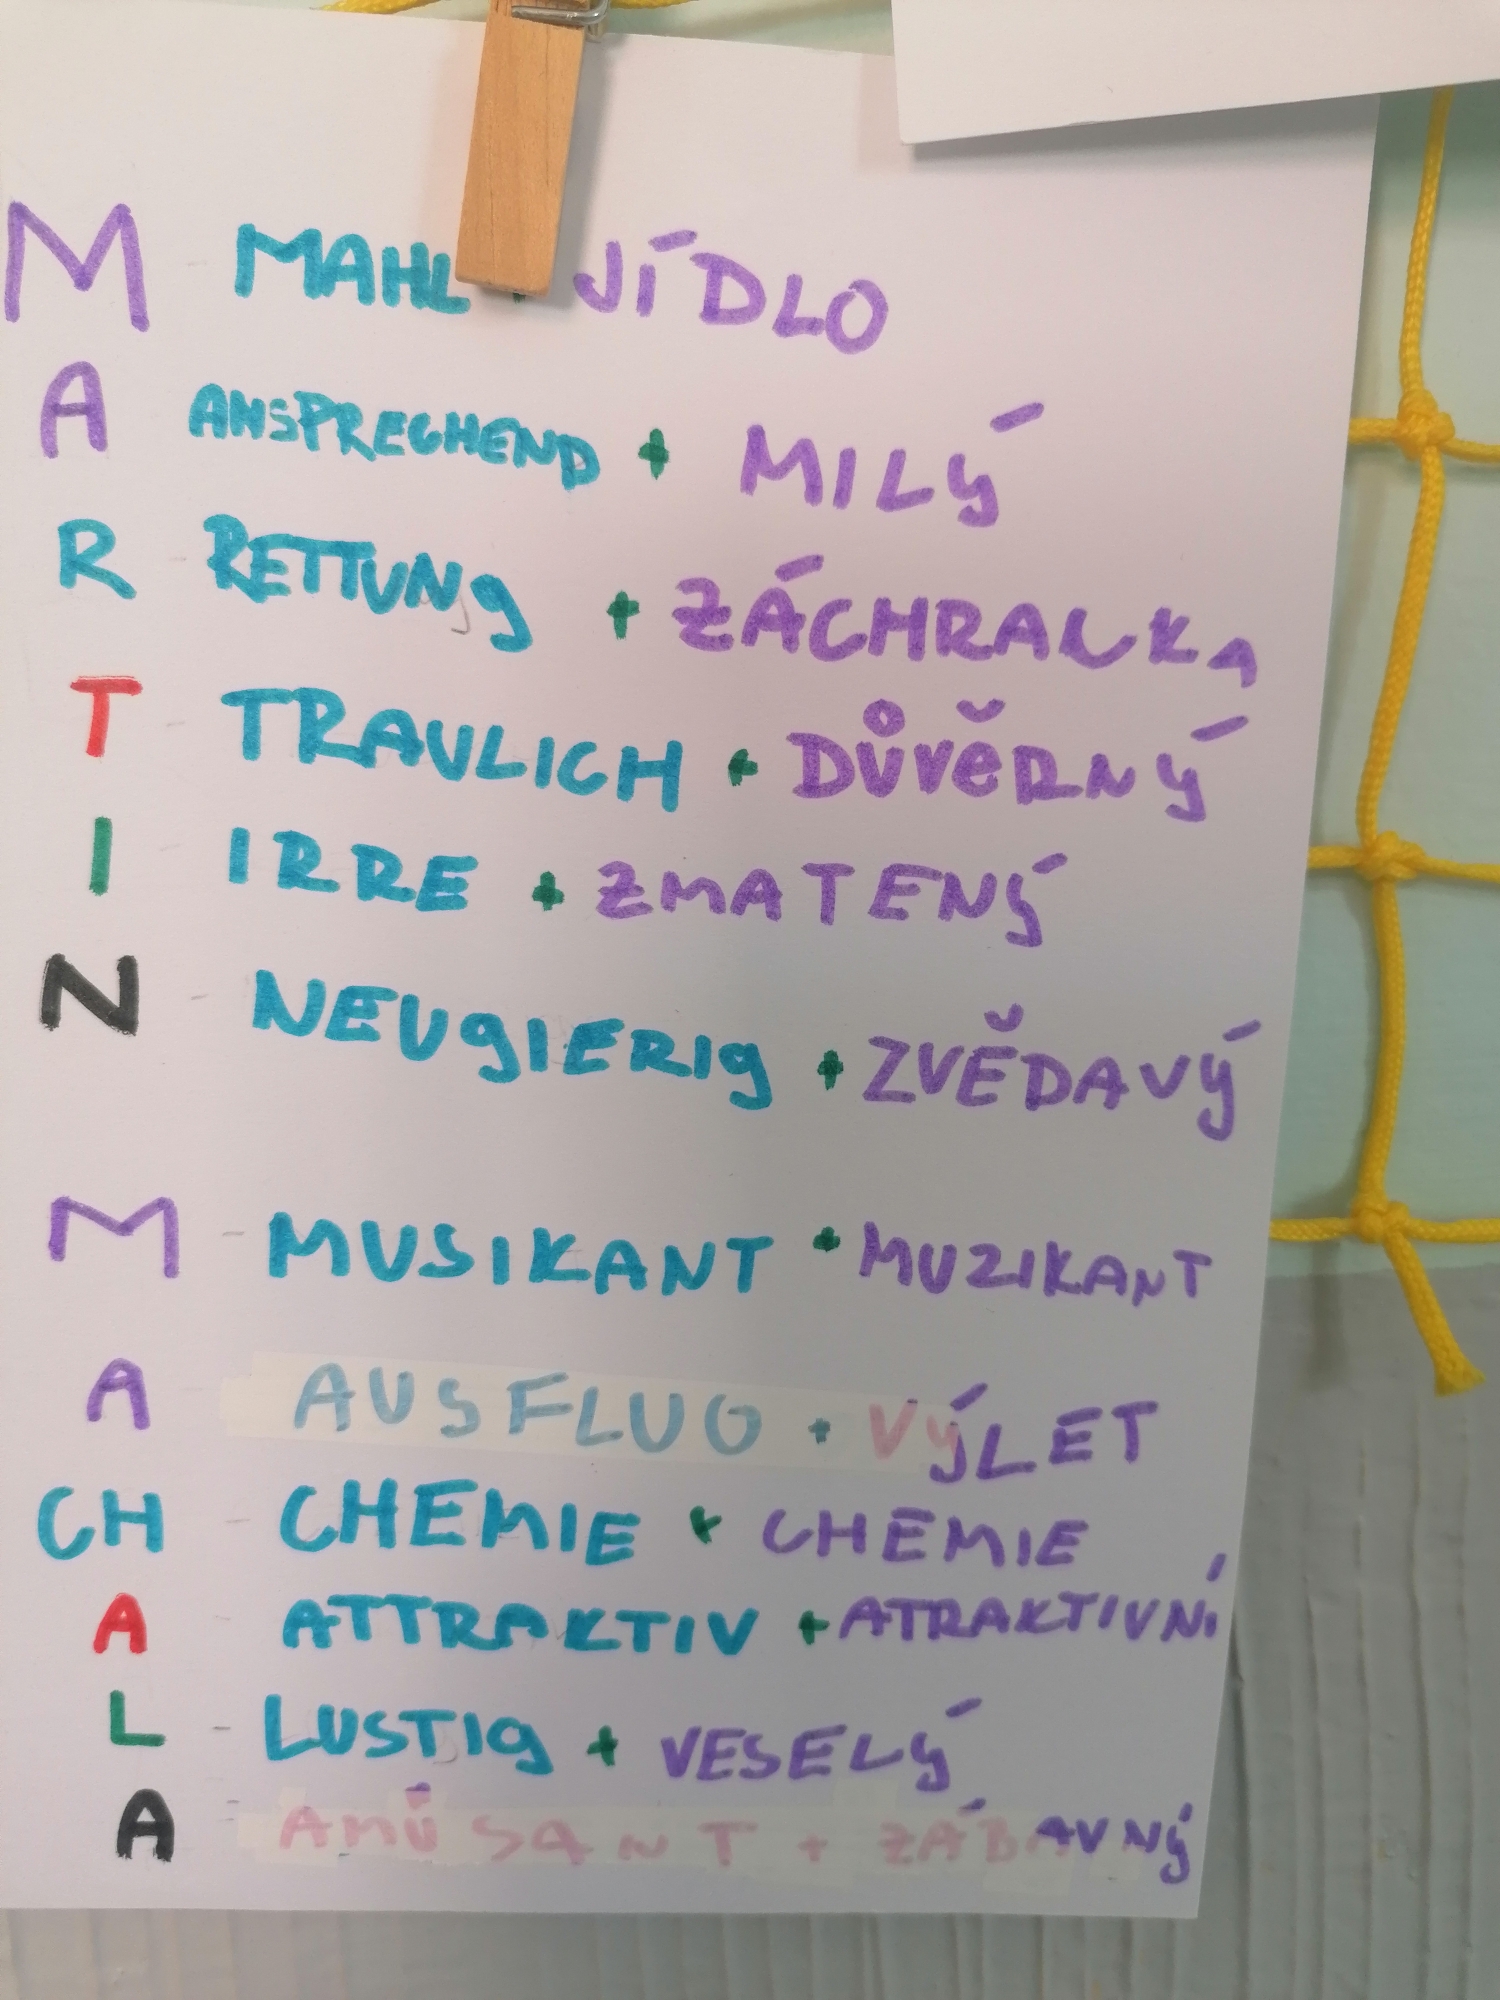 M - MAHL + JÍDLO
A ANSPRECHEND + MILÝ
R - RETTUNG + ZÁCHRANKA
T - TRAULICH + DŮVĚRNÝ
I - IRRE + ZMATENÝ
N - NEUGIERIG + ZVĚDAVÝ
M - MUSIKANT + MUZIKANT
A AUSFLUG + VÝLET
CH - CHEMIE + CHEMIE
A - ATTRAKTIV + ATRAKTIVNÍ
L - LUSTIG + VESELÝ
A - AMÜSANT + ZÁBAVNÝ